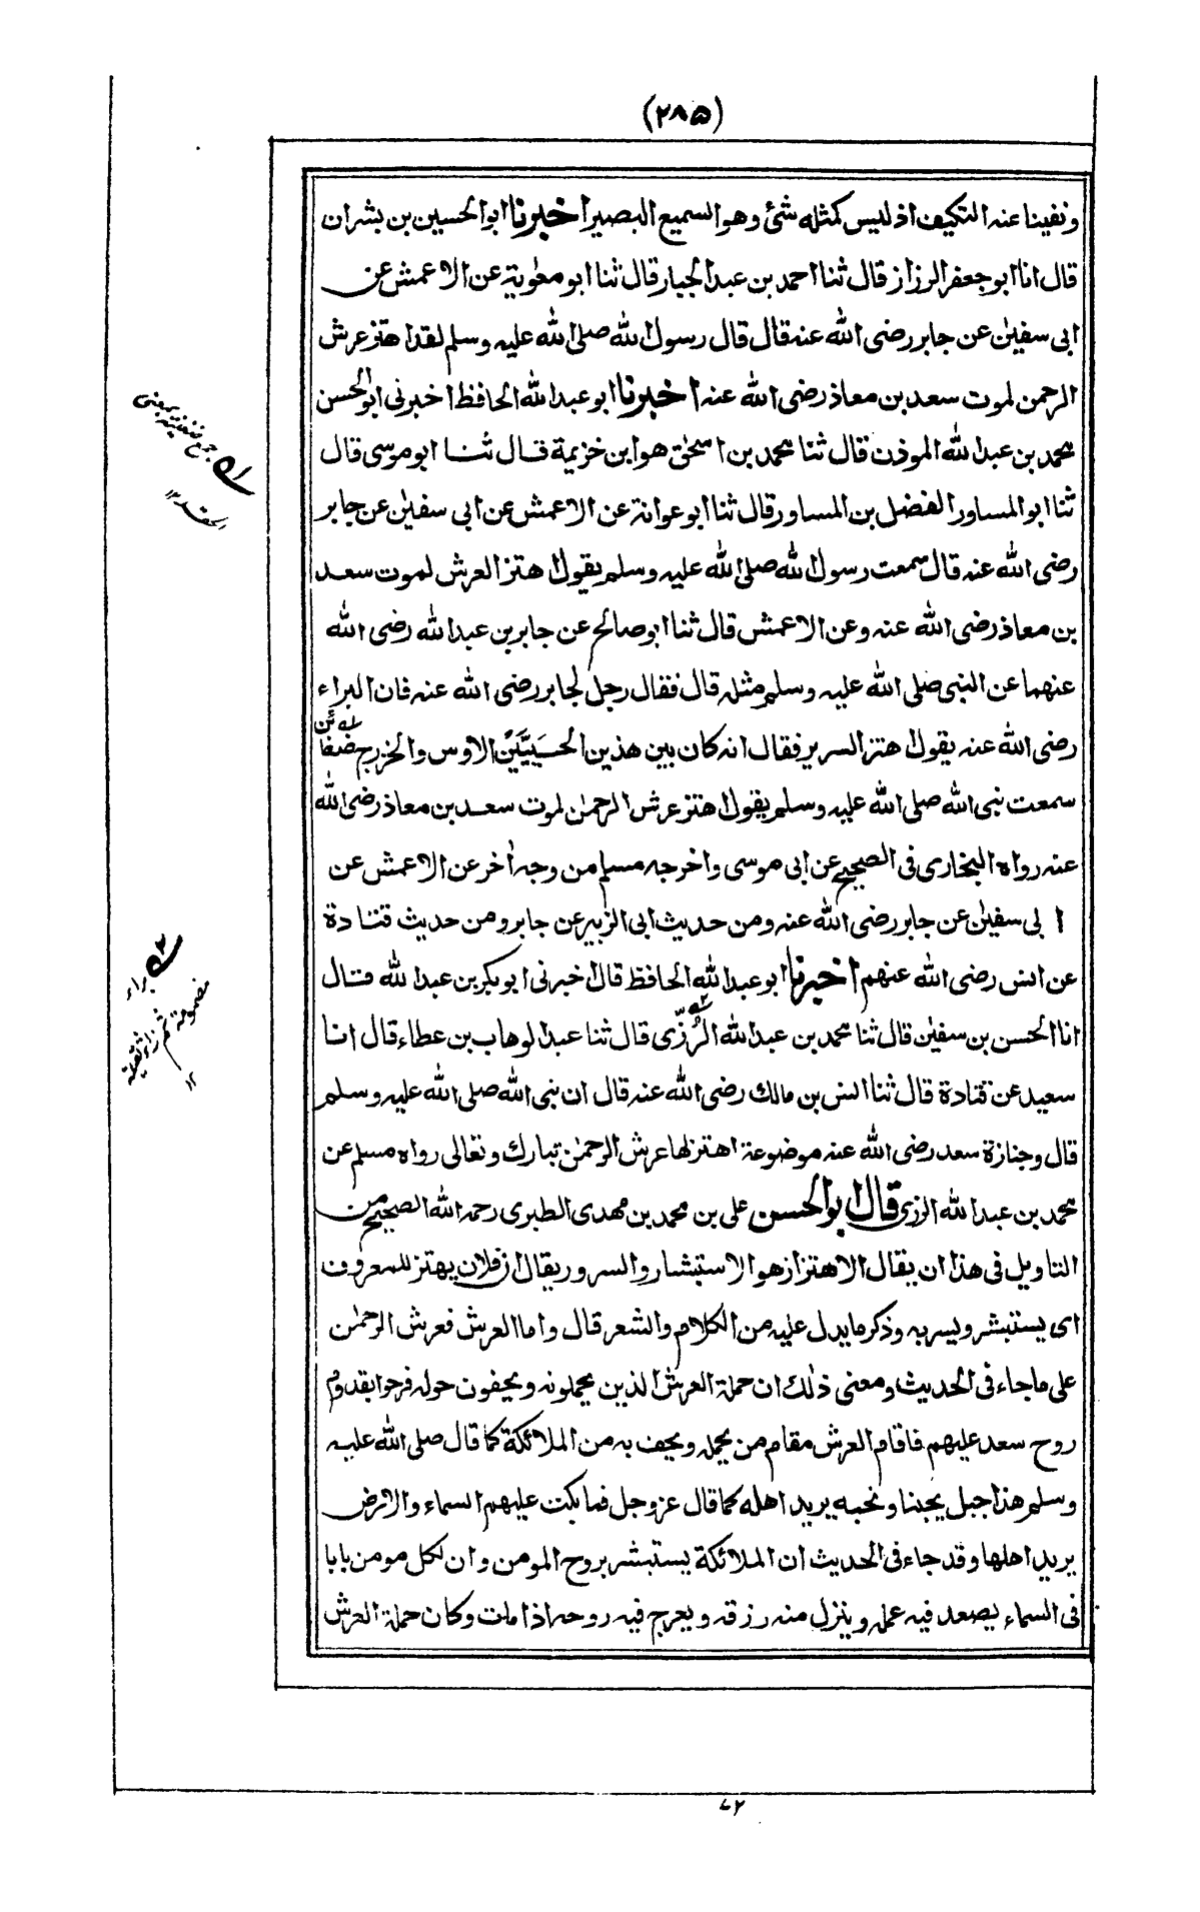 (٢٨٥)
ونفينا عنه التكيف اذ ليس كمثله شئ وهو السميع البصير اخبرنا ابو الحسين بن بشران
قال انا ابو جعفر الرزاز قال ثنا احمد بن عبد الجبار قال ثنا ابو معٰوية عن الاعمش عن
ابى سفيٰن عن جابر رضى الله عنه قال قال رسول الله صلى الله عليه وسلم لقد اهتز عرش
الرحمن لموت سعد بن معاذ رضى الله عنه اخبرنا ابو عبد الله الحافظ اخبرنى ابو الحسن
محمد بن عبد الله الموذن قال ثنا محمد بن اسحٰق هو ابن خزيمة قال ثنا ابو موسى قال
ثنا ابو المساور الفضل بن المساور قال ثنا ابو عوانة عن الاعمش عن ابى سفيٰن عن جابر
رضى الله عنه قال سمعت رسول الله صلى الله عليه وسلم يقول اهتز العرش لموت سعد
بن معاذ رضى الله عنه وعن الاعمش قال ثنا ابو صالح عن جابر بن عبد الله رضى الله
عنهما عن النبى صلى الله عليه وسلم مثله قال فقال رجل لجابر رضى الله عنه فان البراء
رضى الله عنه يقول اهتز السرير فقال انه كان بين هذين الحَيَّيْنِ الاوس والخزرج ضغائن
سمعت نبى الله صلى الله عليه وسلم يقول اهتز عرش الرحمٰن لموت سعد بن معاذ رضى الله
عنه رواه البخارى فى الصحيح عن ابى موسى واخرجه مسلم من وجه اٰخر عن الاعمش عن
ابى سفيٰن عن جابر رضى الله عنه ومن حديث ابى الزبير عن جابر ومن حديث قتادة
عن انس رضى الله عنهم اخبرنا ابو عبد الله الحافظ قال اخبرنى ابو بكر بن عبد الله قال
انا الحسن بن سفيٰن قال ثنا محمد بن عبد الله الرُزّى قال ثنا عبد الوهاب بن عطاء قال انا
سعيد عن قتادة قال ثنا انس بن مالك رضى الله عنه قال ان نبى الله صلى الله عليه وسلم
قال وجنازة سعد رضى الله عنه موضوعة اهتز لها عرش الرحمٰن تبارك وتعالى رواه مسلم عن
محمد بن عبد الله الرزى قال ابو الحسن على بن محمد بن مهدى الطبرى رحمه الله الصحيح من
التاويل فى هذا ان يقال الاهتزاز هو الاستبشار والسرور يقال ان فلان يهتز للمعروف
اى يستبشر ويسر به وذكر ما يدل عليه من الكلام والشعر قال واما العرش فعرش الرحمٰن
على ما جاء فى الحديث ومعنى ذٰلك ان حملة العرش الذين يحملونه ويحفون حوله فرحوا بقدوم
روح سعد عليهم فاقام العرش مقام من يحمله ويحف به من الملائكة كما قال صلى الله عليه
وسلم هذا جبل يحبنا ونحبه يريد اهله كما قال عز وجل فما بكت عليهم السماء والارض
يريد اهلها وقد جاء فى الحديث ان الملائكة يستبشر بروح المومن وان لكل مومن بابا
فى السماء يصعد فيه عمله وينزل منه رزقه ويعرج فيه روحه اذا مات وكان حملة العرش
جمع ضغينة بمعنى
الحقد ١٢
براء
مضمومة ثم زاء ثقيلة
١٢
٧٢